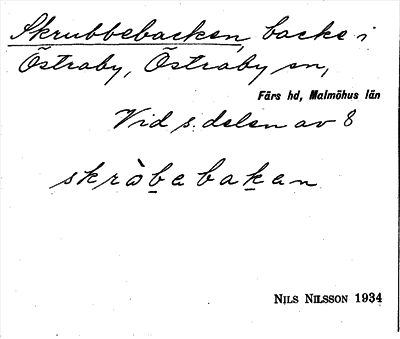 Skrubbebacken, backe i
Östraby, Östraby sn,
Färs hd, Malmöhus län
Vid s. delen av 8
skràbebaken
NILS NILSSON 1934